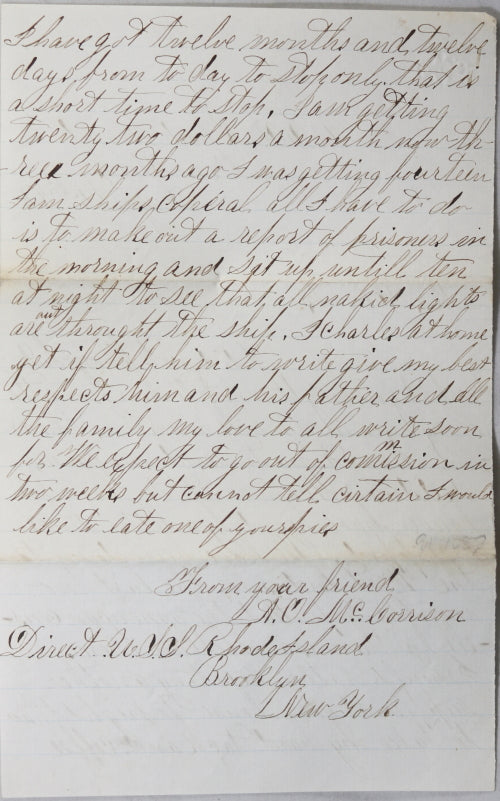 I have got twelve months and twelve
days from to day to stop only that is
a short time to stop. I am getting
twenty two dollars a month now th-
-ree months ago I was getting fourteen
I am ships Coperal all I have to do
is to make out a report of prisoners in
the morning and sat up untill ten
at night to see that all nakid lights
are out throught the ship. I Charles at home
yet if tell him to write give my best
respects him and his father and all
the family my love to all write soon
for We expect to go out of commission in
two weeks but cannot tell cirtain I would
like to eate one of your pies
From your friend
A. O. Mc. Corrison
Direct U.S.S. Rhode Island
Brooklyn
New York